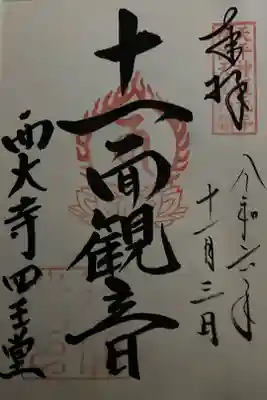 奉拝
令和六年
十一月三日
十一面観音
西大寺四王堂